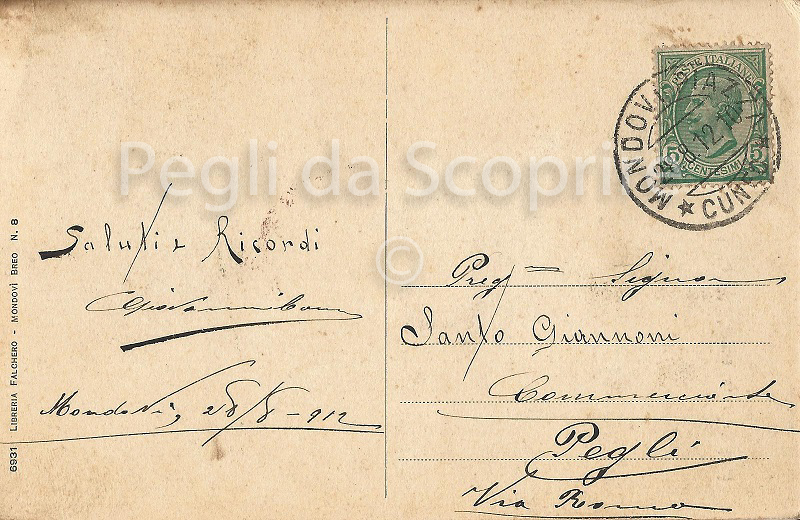 Saluti e Ricordi
Mondovì, 28/8-912
6931 LIBRERIA FALCHERO - MONDOVÌ BREO N. 8
POSTE ITALIANE
CENTESIMI 5
MONDOVI PIAZZA
CUNEO
Preg Signor
Santo Giannoni
Commerciante
Pegli
Via Roma
Pegli da Scoprire
©